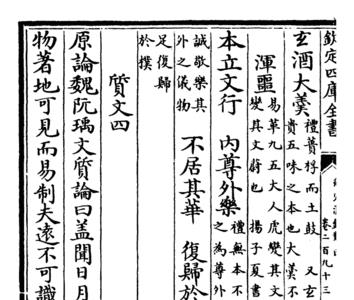 欽定四庫全書
卷二百九十三
玄酒大羹 禮蕢桴而土鼓 又玄
貴五味之本也大羹不
渾噩 易革九五大人虎變其文
變其文蔚也 揚子夏書
本立文行 內尊外樂 禮無本不
之為尊外
誠敬樂其
外之儀物 不居其華 復歸於
足復歸
於樸
質文四
原論魏阮瑀文質論曰蓋聞日月
物著地可見而易制夫遠不可識